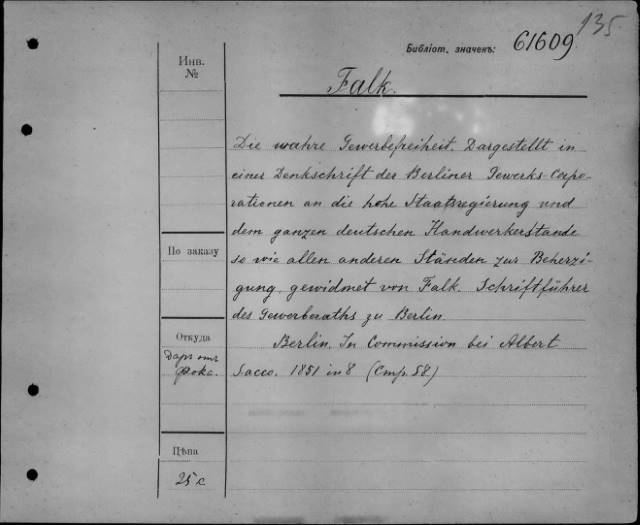 135
Библіот. значекъ: 61609
Инв.
№
Falk.
Die wahre Gewerbefreiheit. Dargestellt in
einer Denkschrift des Berliner Gewerks-Corpo-
rationen an die hohe Staatsregierung und
dem ganzen deutschen Handwerkerstande
so wie allen anderen Ständen zur Beherzi-
gung gewidmet von Falk. Schriftführer
des Gewerberaths zu Berlin.
Berlin. In Commission bei Albert
Sacco. 1851 in 8 (Стр. 58.)
По заказу
Откуда
Даръ отъ
Цѣна
25 к